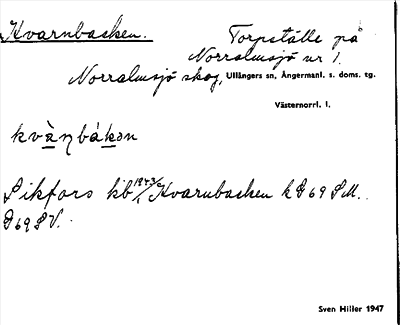 Kvarnbacken.
Torpställe på
Norralmsjö nr 1.
Norralmsjö skog, Ullångers sn, Ångermanl. s. doms. tg.
Västernorrl. l.
kvàṇbákən
Sikfors kb 1943/1 Kvarnbacken k D 69 SM.
D 69 SV.
Sven Hiller 1947